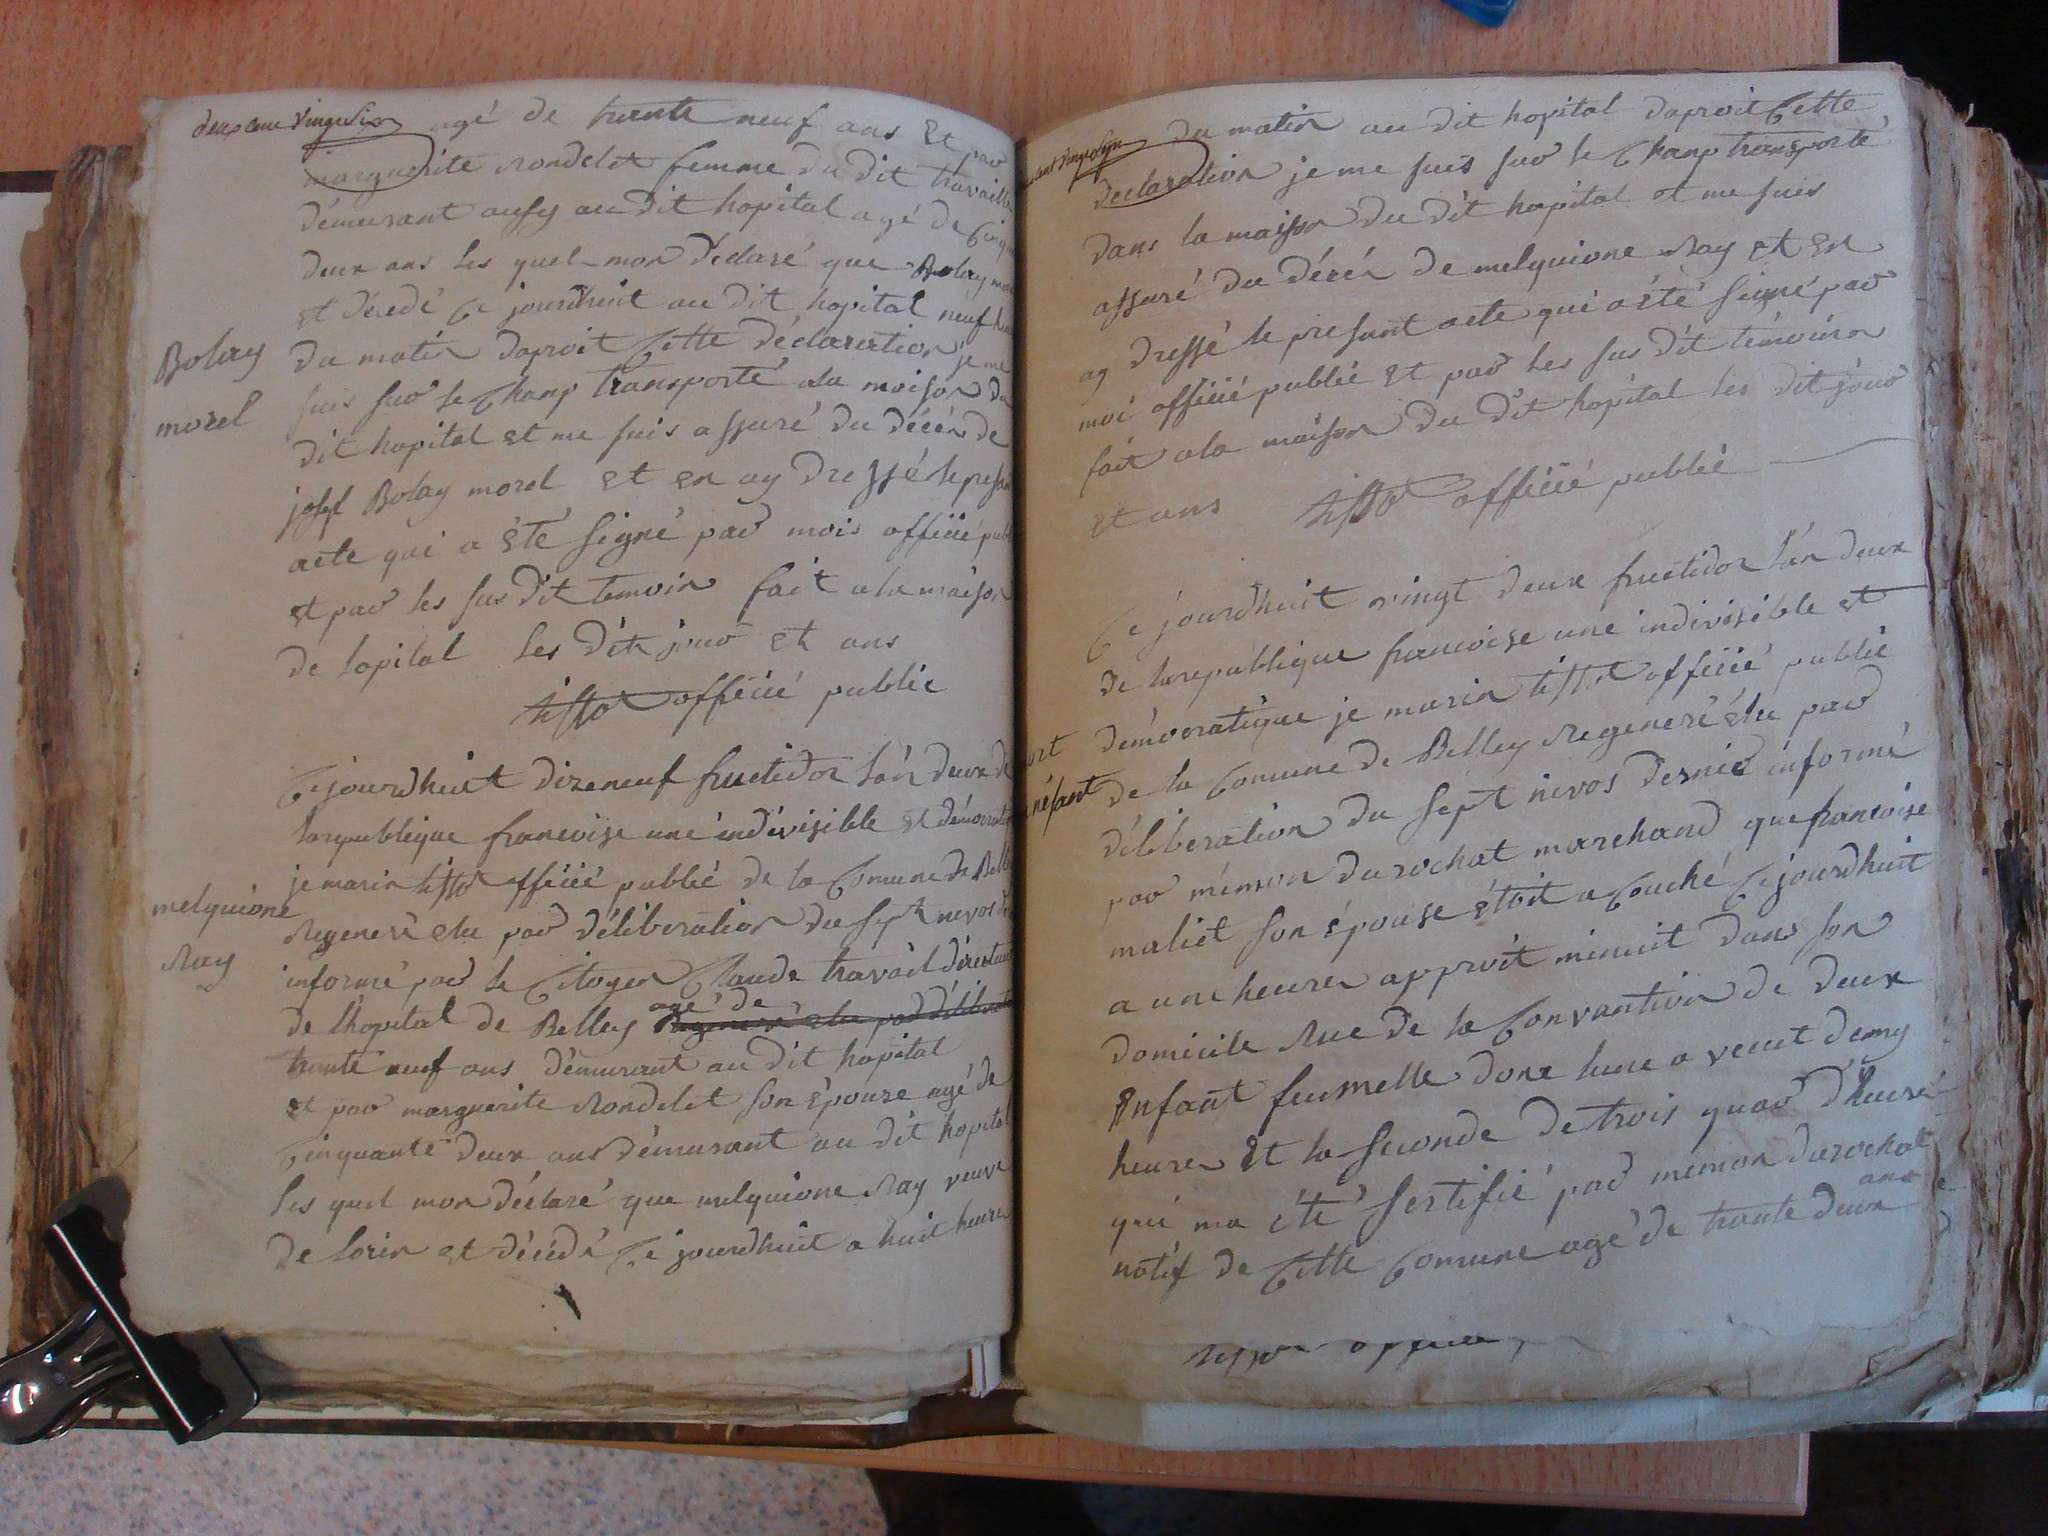 deux cent vingt six
agé de trente neuf ans Et par
marguerite Rondelet femme du dit travaille
démurant ausy au dit hopital agé de Cinq
deux ans les quel mon déclaré que Bolay mo
et décedé Ce jourdhuit au dit hopital neuf heu
Bolay
morel
du matin daproit Cette déclaration je me
suis sur le Champ transporté a la maison du
dit hopital et me suis assuré du décér de
josef Bolay morel et en ay dressé le presa
acte qui a été signé par mois officié publ
et par les sus dit temoin fait a la maison
de lopital les dit jour et ans
tissot officié public
Ce jourdhuit dizeneuf fructidor lan deux de
larepublique francoise une indivisible et démocrati
je marin tissot officié publié de la Comune de Bell
melquione
Ray
Regeneré elu par déliberation du sept nivos de
informé par le Citoyen Claude travail directeu
de lhopital de Belley agé de
Regeneré elu par déliberati
trante neuf ans démurant au dit hopital
et par marguerite Rondelet son épouze agé de
Cinquante deux ans démurant au dit hopital
les quel mon déclaré que melquione Ray veuve
de lorin et décédé Ce jourdhuit a huit heures
du matin au dit hopital daproit Cette
declaration je me suis sur le Champ transporté
dans la maison du dit hopital et me suis
assuré du décér de melquione Ray et en
ay dressé le presant acte qui a été signé par
moi officié publié et par les sus dit témoins
fait a la maison du dit hopital les dit jour
et ans tissot officié publié
Ce jourdhuit vingt deux fructidor lan deux
de larepublique francoise une indivisible et
démocratique je marin tissot officié publié
ort
enéfant
de la Comune de Belley Regeneré élu par
déliberation du sept nivos dernié informé
par mémon durochat marchand que francoise
maliet son épouse étoit acouché Ce jourdhuit
a une heures approit minuit dans son
domicile Rue de la Convantion de deux
Enfant feumelle done lune a vecut demy
heures et la seconde de trois quar dheure
qui ma été sertifié par mémon durochat
natif de Cette Comune agé de trante deux ans
tissot officié